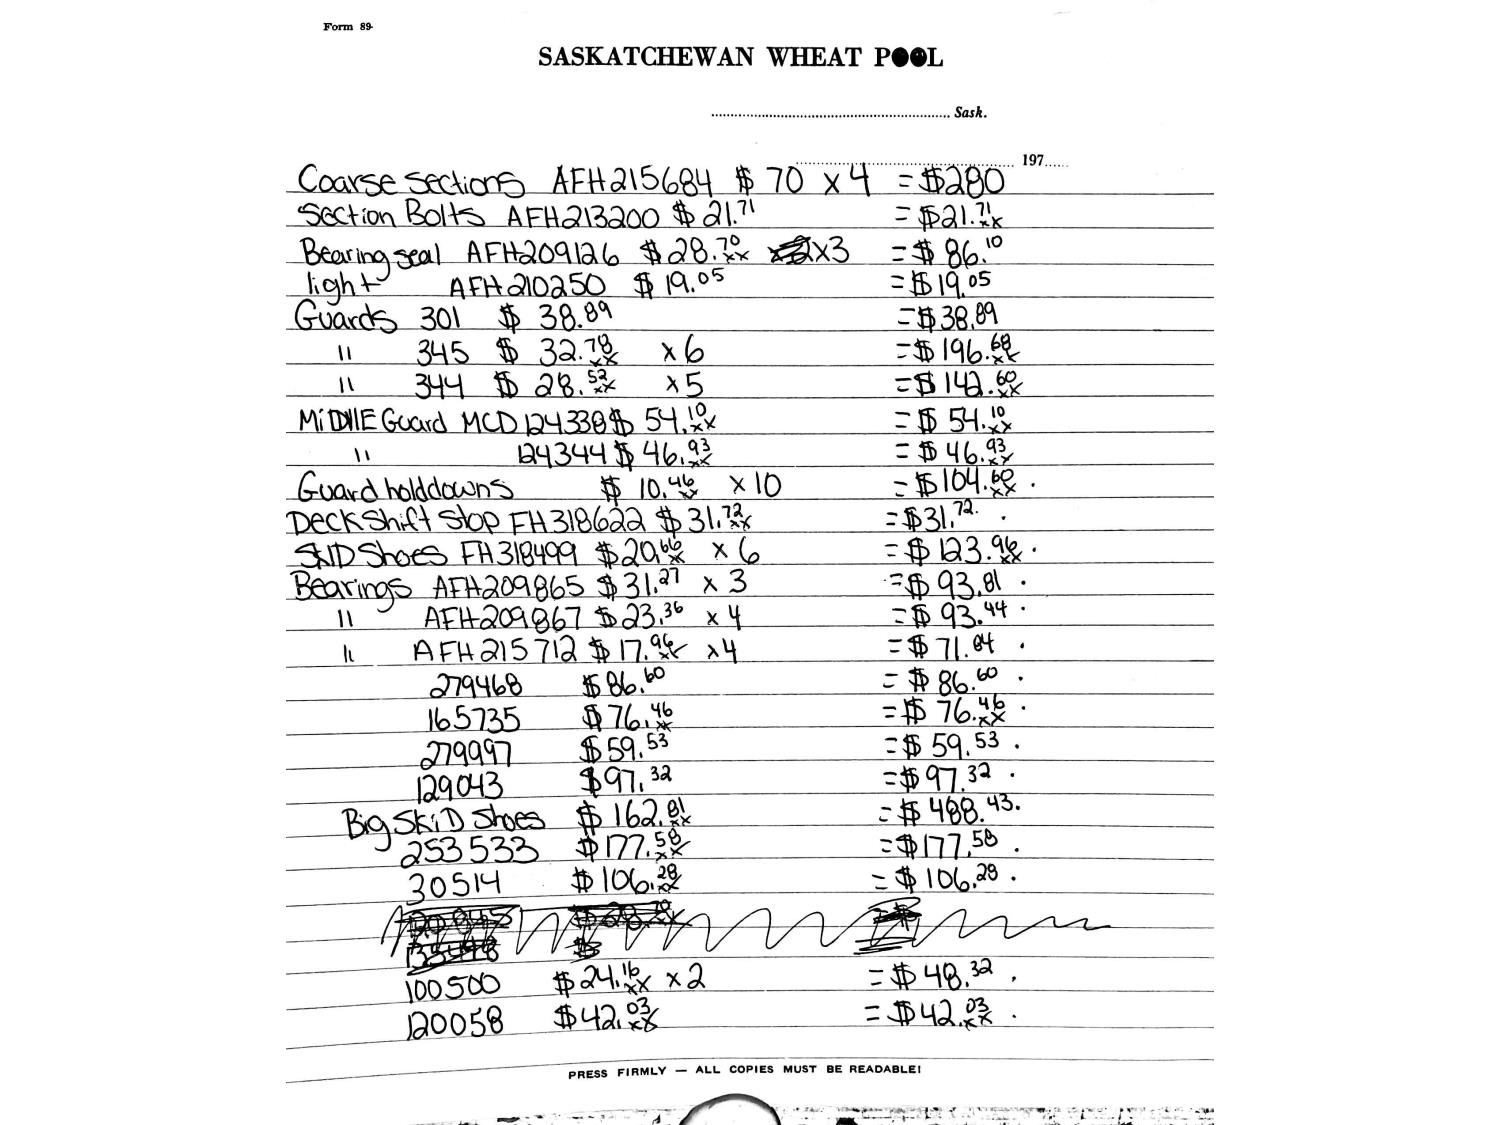 Form 89-
SASKATCHEWAN WHEAT POOL
Sask.
197
Coarse sections AFH215684 $ 70 x 4 = $280
Section Bolts AFH213200 $ 21.71 = $21.71
Bearing seal AFH209126 $ 28.70 x3 = $ 86.10
light AFH210250 $ 19.05 = $19.05
Guards 301 $ 38.89 = $38.89
" 345 $ 32.78 x6 = $ 196.68
" 344 $ 28.52 x5 = $ 142.60
MiDDlE Guard MCD 124338 $ 54.10 = $ 54.10
" 124344 $ 46.93 = $ 46.93
Guard holddowns $ 10.46 x 10 = $104.60
Deck Shift Stop FH318622 $31.72 = $31.72
SKID Shoes FH318499 $20.66 x 6 = $ 123.96
Bearings AFH209865 $31.27 x 3 = $ 93.81
" AFH209867 $23.36 x 4 = $ 93.44
" AFH215712 $17.96 x4 = $ 71.84
279468 $86.60 = $ 86.60
165735 $76.46 = $ 76.46
279997 $59.53 = $ 59.53
129043 $97.32 = $ 97.32
Big SKiD Shoes $ 162.81 = $ 488.43
253533 $177.58 = $177.58
30514 $106.28 = $ 106.28
100500 $24.16 x 2 = $ 48.32
120058 $42.03 = $42.03
PRESS FIRMLY — ALL COPIES MUST BE READABLE!